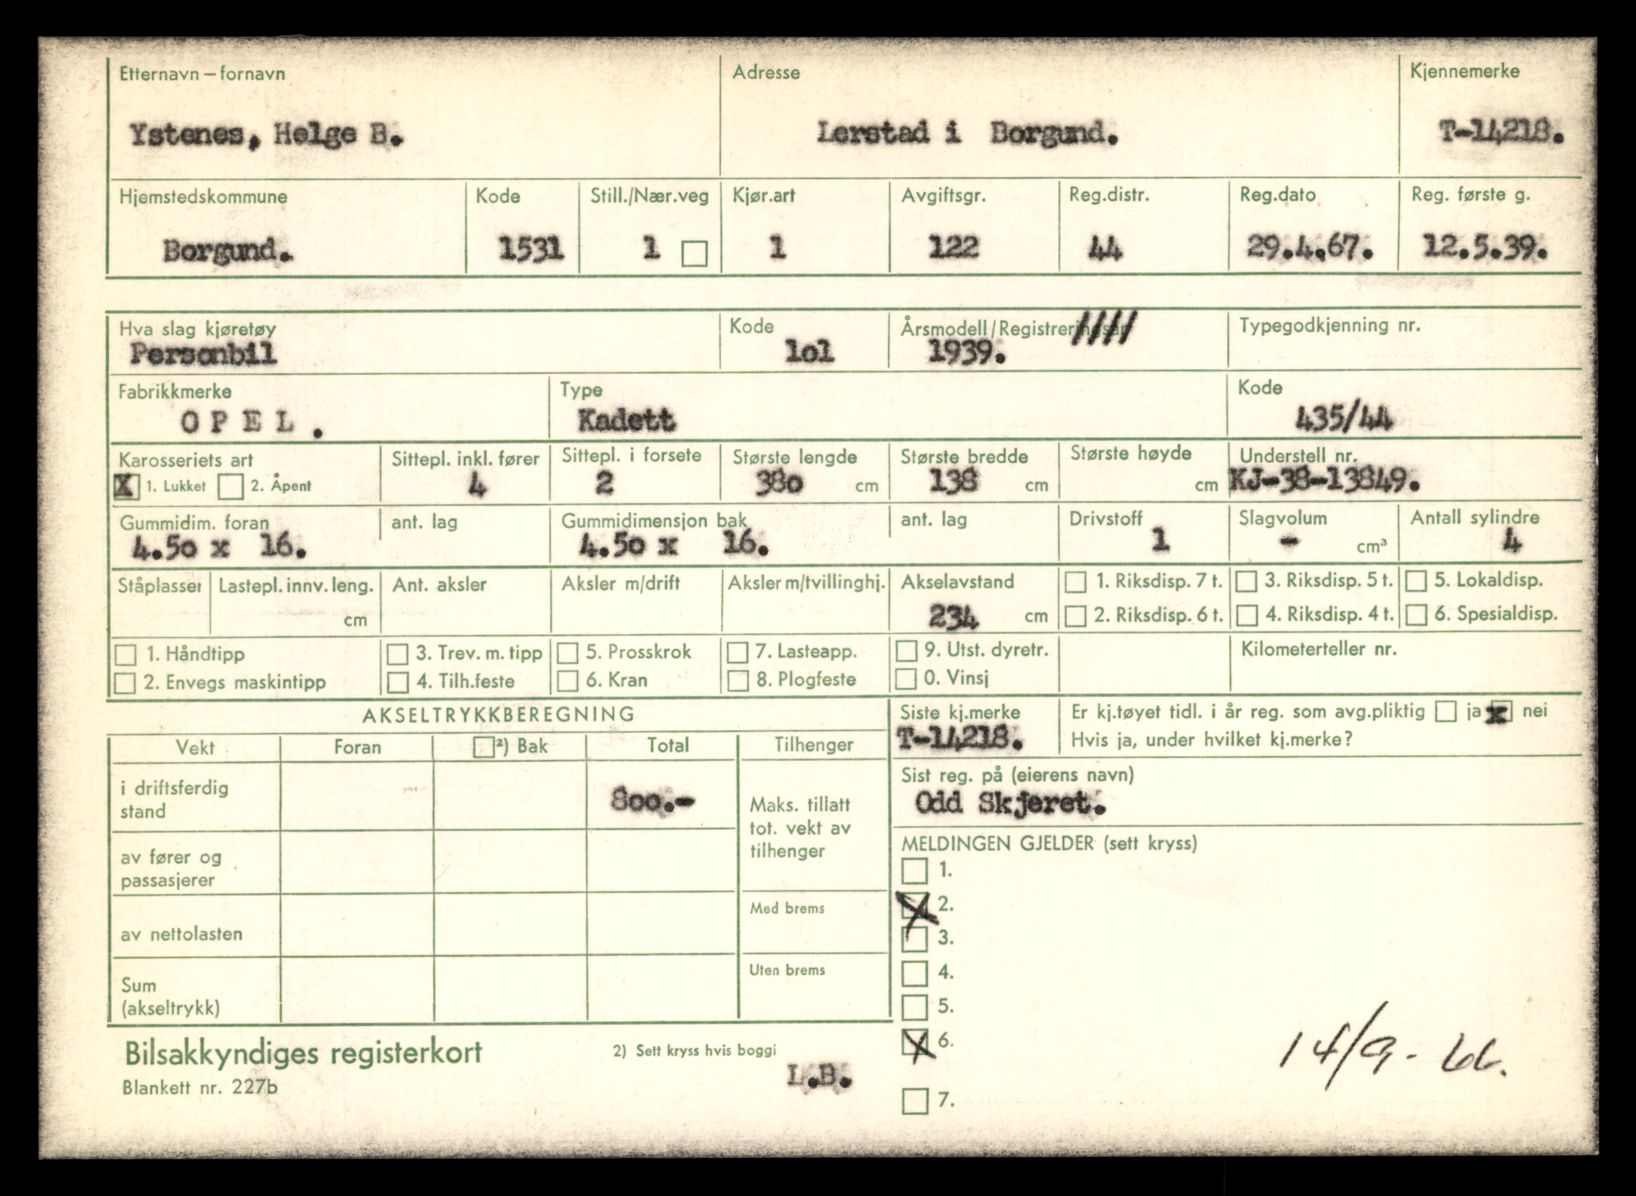 Etternavn – fornavn Adresse Kjennemerke
Ystenes, Helge B. Lerstad i Borgund. T-14218.
Hjemstedskommune Kode Still./Nær.veg Kjør.art Avgiftsgr. Reg.distr. Reg.dato Reg. første g.
Borgund. 1531 1 1 122 44 29.4.67. 12.5.39.
Hva slag kjøretøy Kode Årsmodell/Registreringsår Typegodkjenning nr.
Personbil lol 1939.
Fabrikkmerke Type Kode
O P E L . Kadett 435/44
Karosseriets art Sittepl. inkl. fører Sittepl. i forsete Største lengde Største bredde Største høyde Understell nr.
X 1. Lukket 2. Åpent 4 2 380 cm 138 cm cm KJ-38-13849.
Gummidim. foran ant. lag Gummidimensjon bak ant. lag Drivstoff Slagvolum Antall sylindre
4.50 x 16. 4.50 x 16. 1 - cm³ 4
Ståplasser Lastepl. innv. leng. Ant. aksler Aksler m/drift Aksler m/tvillinghj. Akselavstand 1. Riksdisp. 7 t. 3. Riksdisp. 5 t. 5. Lokaldisp.
cm 234 cm 2. Riksdisp. 6 t. 4. Riksdisp. 4 t. 6. Spesialdisp.
1. Håndtipp 3. Trev. m. tipp 5. Prosskrok 7. Lasteapp. 9. Utst. dyretr. Kilometerteller nr.
2. Envegs maskintipp 4. Tilh.feste 6. Kran 8. Plogfeste 0. Vinsj
AKSELTRYKKBEREGNING Siste kj.merke Er kj.tøyet tidl. i år reg. som avg.pliktig ja x nei
Vekt Foran ²) Bak Total Tilhenger T-14218. Hvis ja, under hvilket kj.merke?
i driftsferdig stand 800.- Sist reg. på (eierens navn)
Odd Skjeret.
Maks. tillatt tot. vekt av tilhenger
MELDINGEN GJELDER (sett kryss)
av fører og passasjerer 1.
Med brems X 2.
av nettolasten 3.
Uten brems 4.
Sum (akseltrykk) 5.
X 6.
14/9-66.
Bilsakkyndiges registerkort 2) Sett kryss hvis boggi
L.B.
Blankett nr. 227b 7.